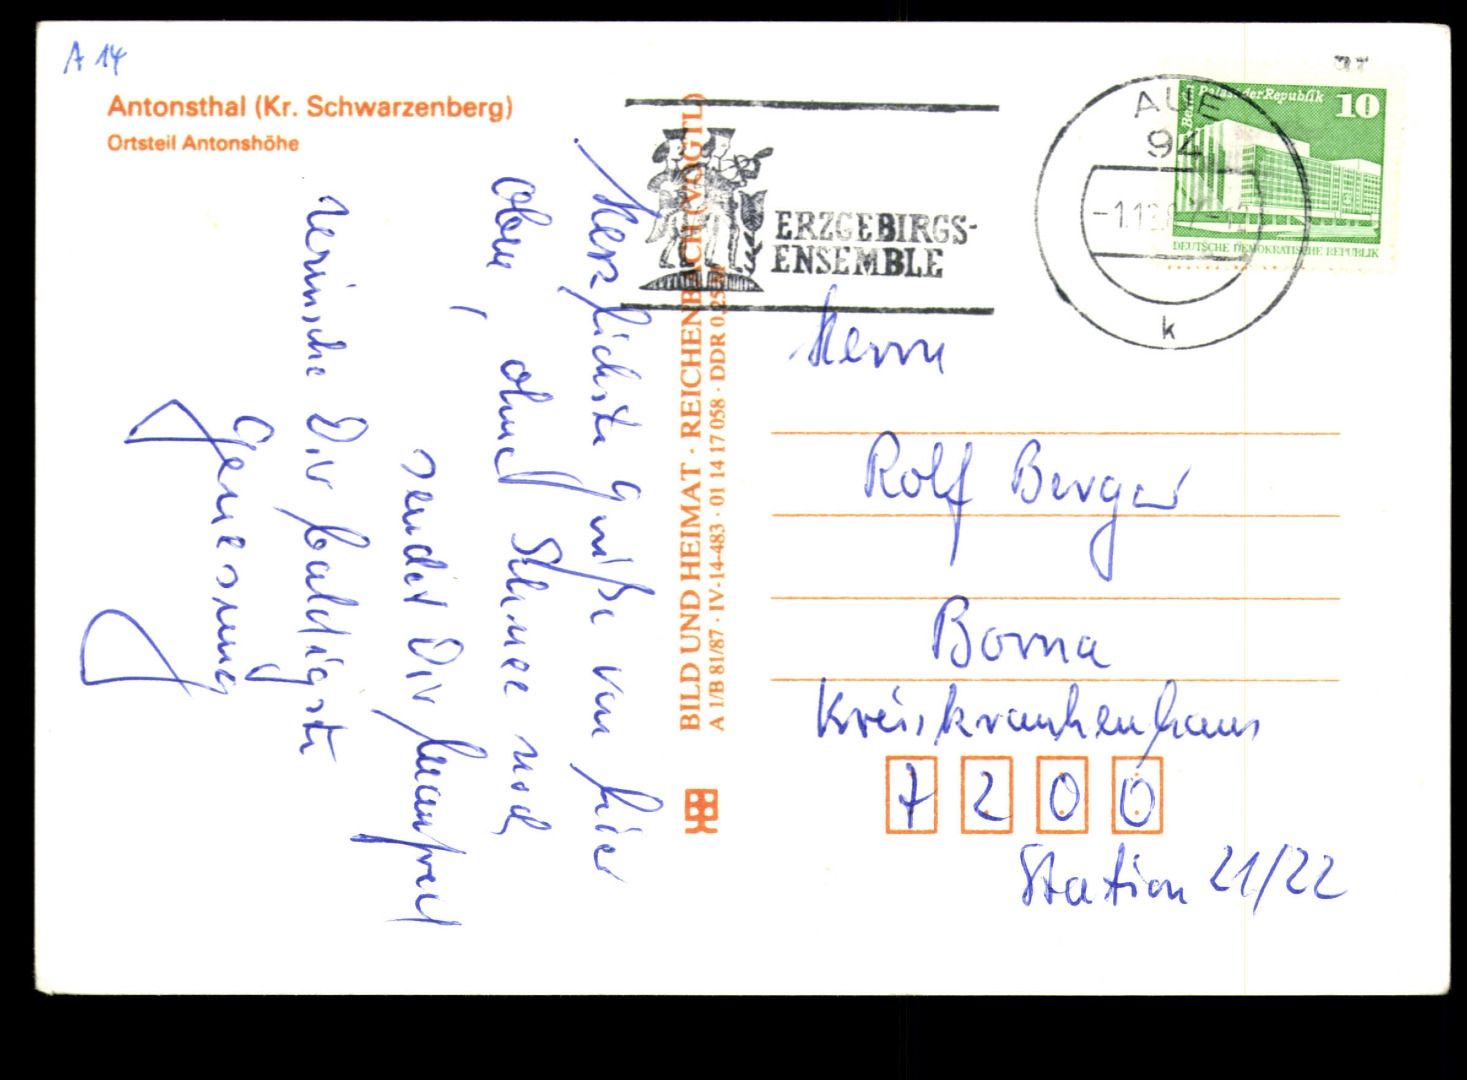 A 14
Antonsthal (Kr. Schwarzenberg)
Ortsteil Antonshöhe
Herzlichste Grüße von hier
oben, ohne Schnee und
sendet Dir Manfred
wünsche Dir baldigste
Genesung
BILD UND HEIMAT · REICHENBACH (VOGTL)
A 1/B 81/87 · IV-14-483 · 01 14 17 058 · DDR 0,25 M
ERZGEBIRGS-
ENSEMBLE
AUE
94
k
Palast der Republik
10
DEUTSCHE DEMOKRATISCHE REPUBLIK
Herrn
Rolf Berger
Borna
Kreiskrankenhaus
7200
Station 21/22